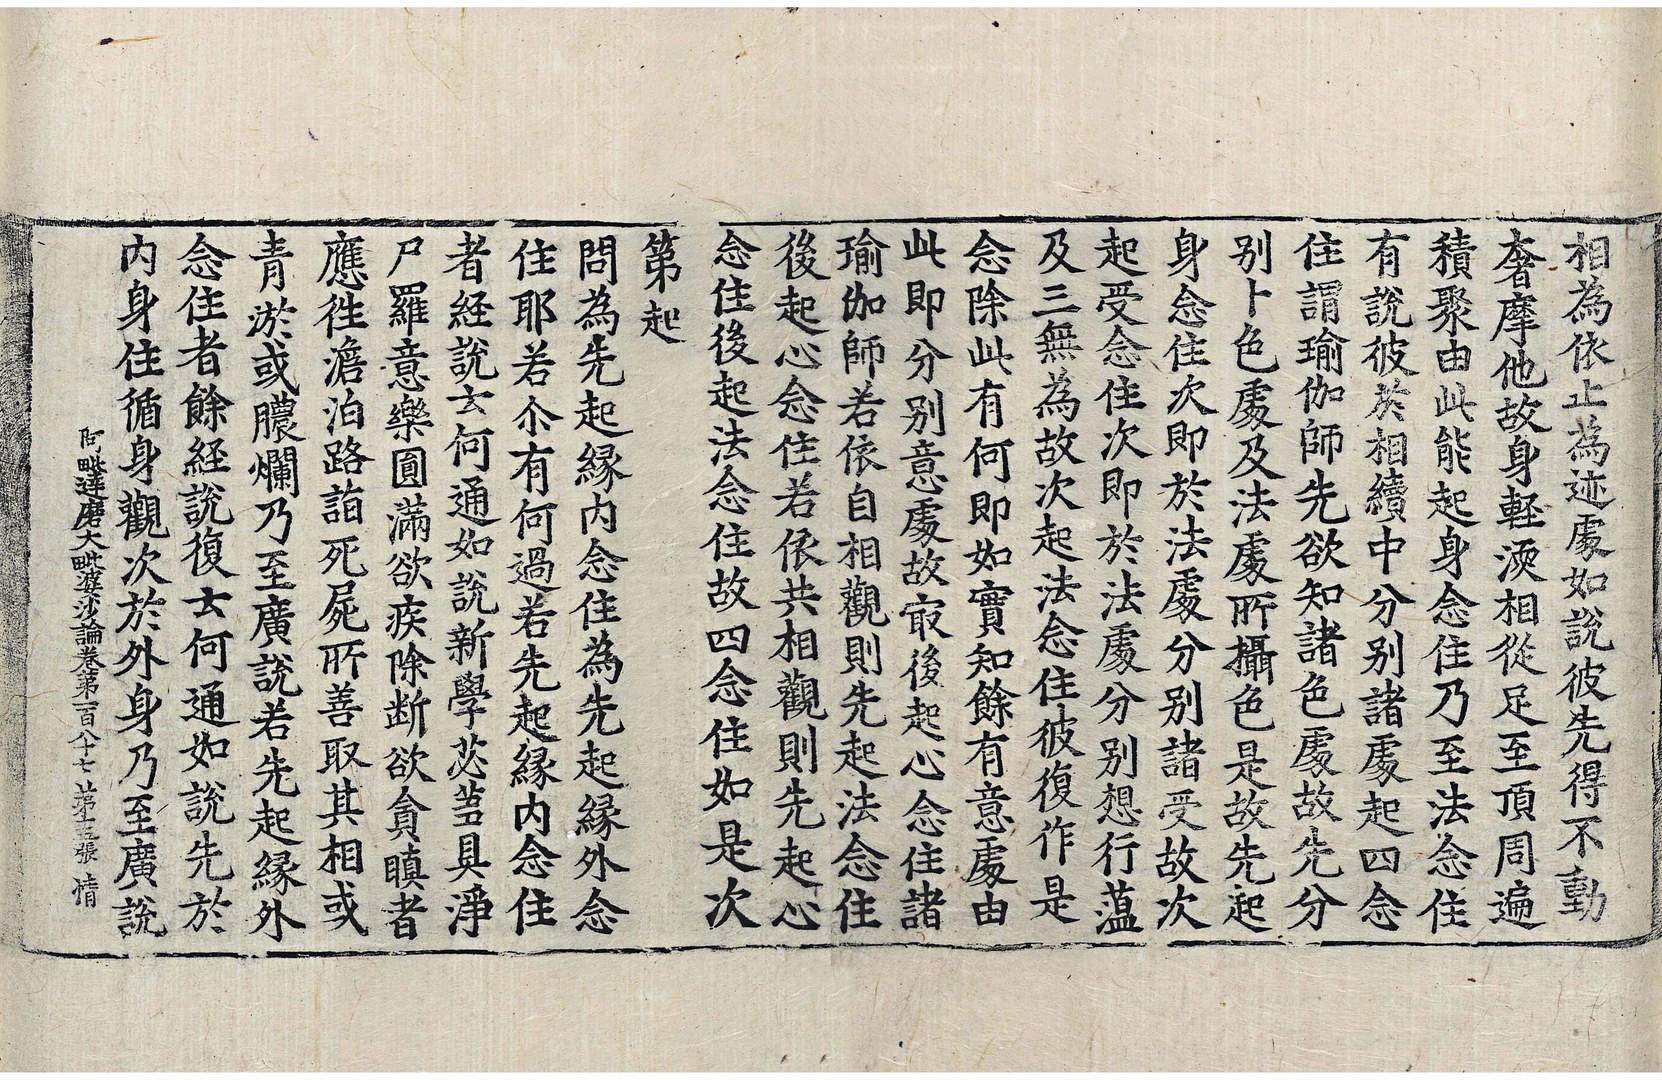 相為依止為迹處如說彼先得不動
奢摩他故身輕㬉相從足至頂周遍
積聚由此能起身念住乃至法念住
有說彼於相續中分別諸處起四念
住謂瑜伽師先欲知諸色處故先分
別十色處及法處所攝色是故先起
身念住次即於法處分別諸受故次
起受念住次即於法處分別想行蘊
及三無為故次起法念住彼復作是
念除此有何即如實知餘有意處由
此即分別意處故㝡後起心念住諸
瑜伽師若依自相觀則先起法念住
後起心念住若依共相觀則先起心
念住後起法念住故四念住如是次
第起
問為先起緣內念住為先起緣外念
住耶若尒有何過若先起緣內念住
者經說去何通如說新學苾芻具淨
尸羅意樂圓滿欲疾除斷欲貪瞋者
應徃澹泊路詣死屍所善取其相或
青淤或膿爛乃至廣說若先起緣外
念住者餘經說復去何通如說先於
內身住循身觀次於外身乃至廣說
阿毗達磨大毗婆沙論卷第一百八十七 第十五張 情